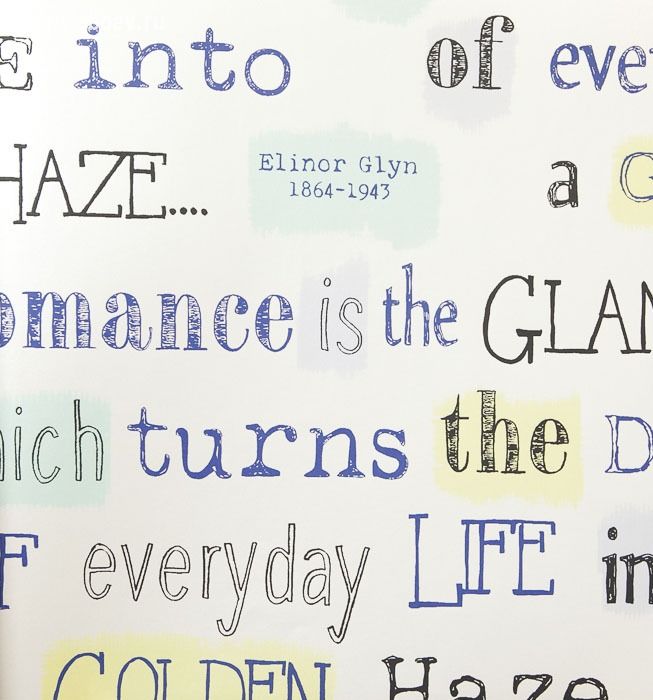 E into of eve
HAZE.... Elinor Glyn a G
1864-1943
omance is the GLAN
ich turns the D
F everyday LIFE in
GOLDEN Haze